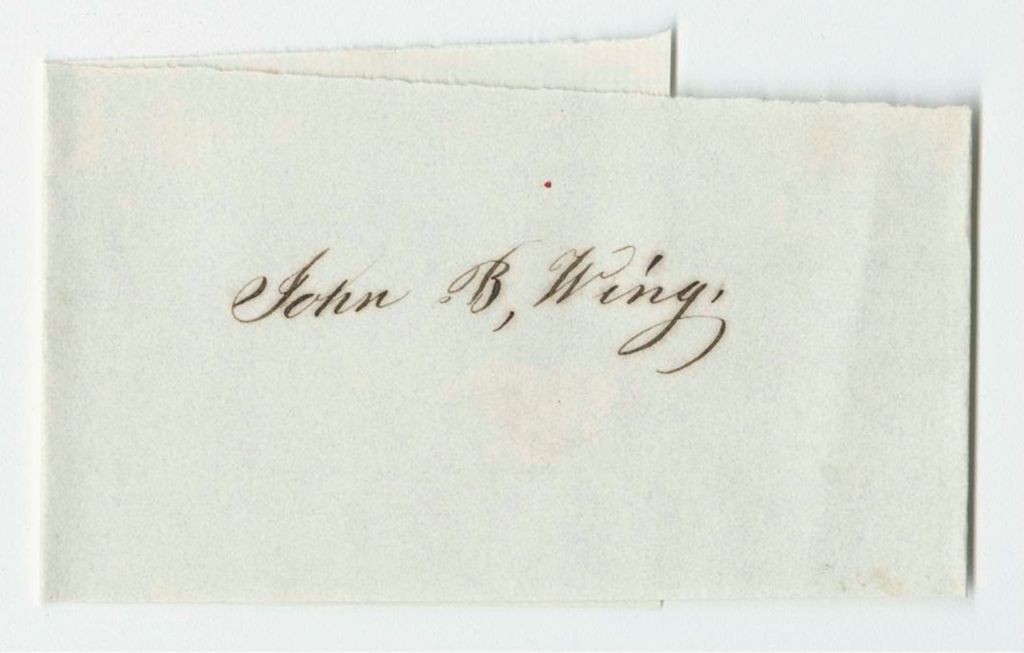 John B, Wing.